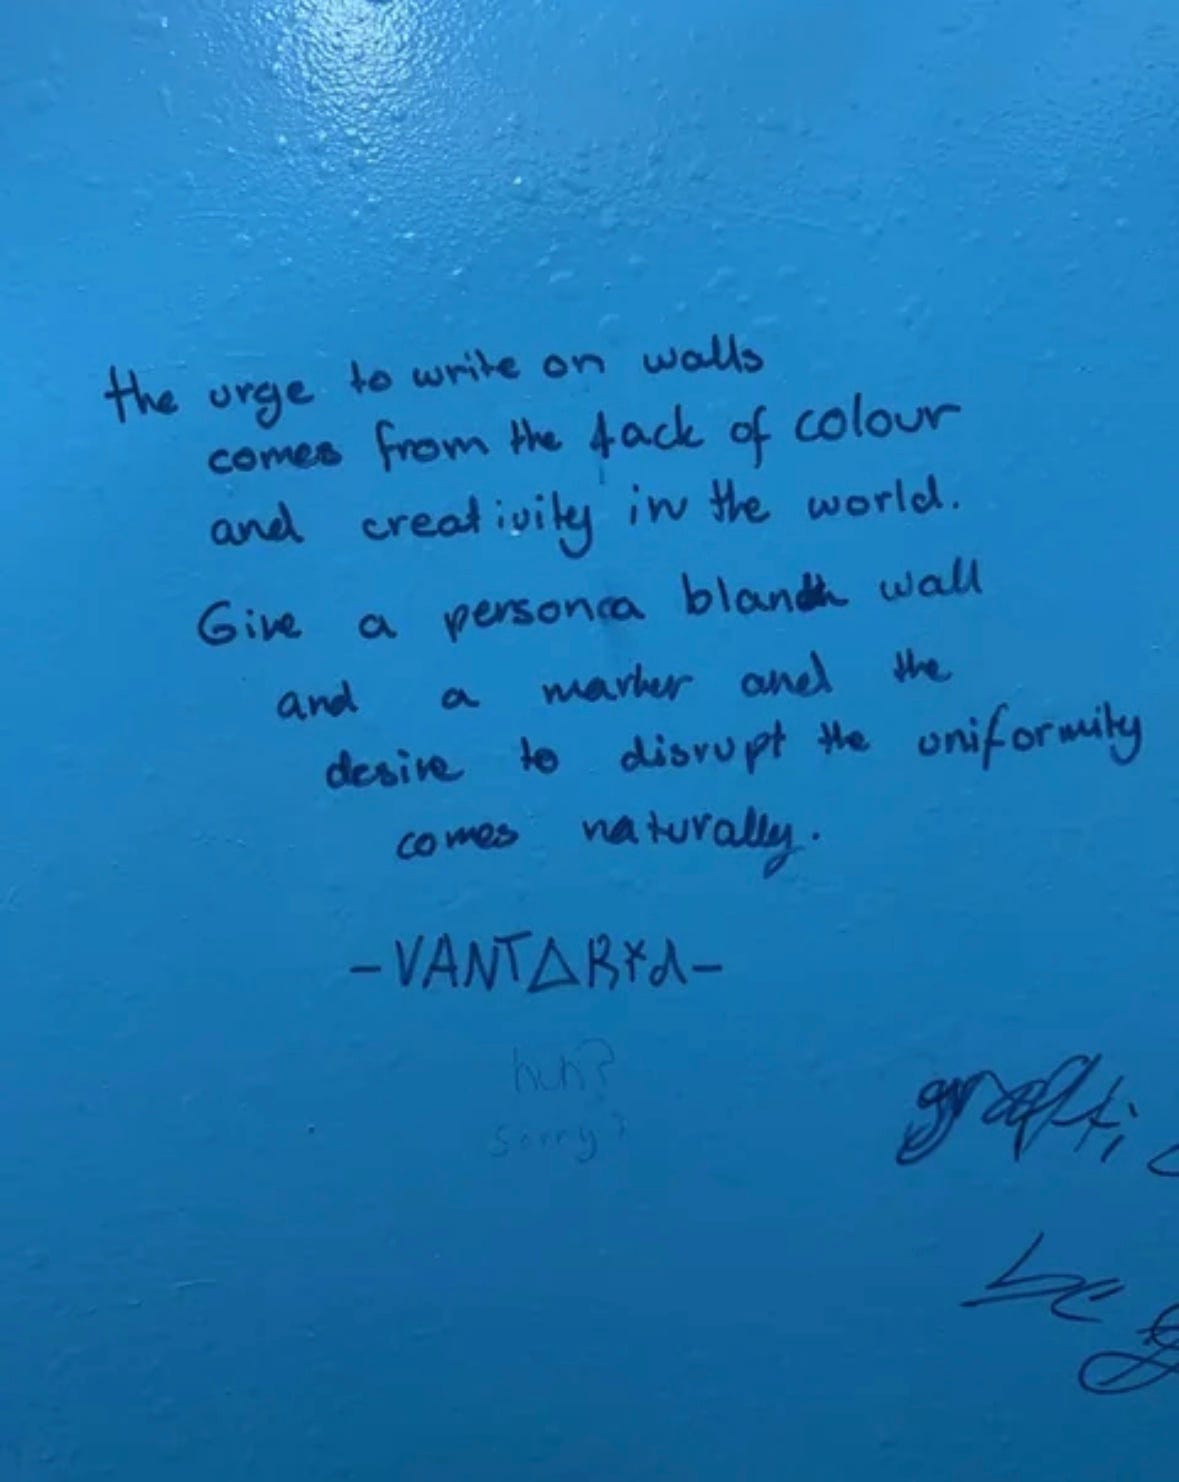 the urge to write on walls
comes from the lack of colour
and creativity in the world.
Give a person a bland wall
and a marker and the
desire to disrupt the uniformity
comes naturally.
-VANTΔR*d-
huh?
sorry?
graffiti
be